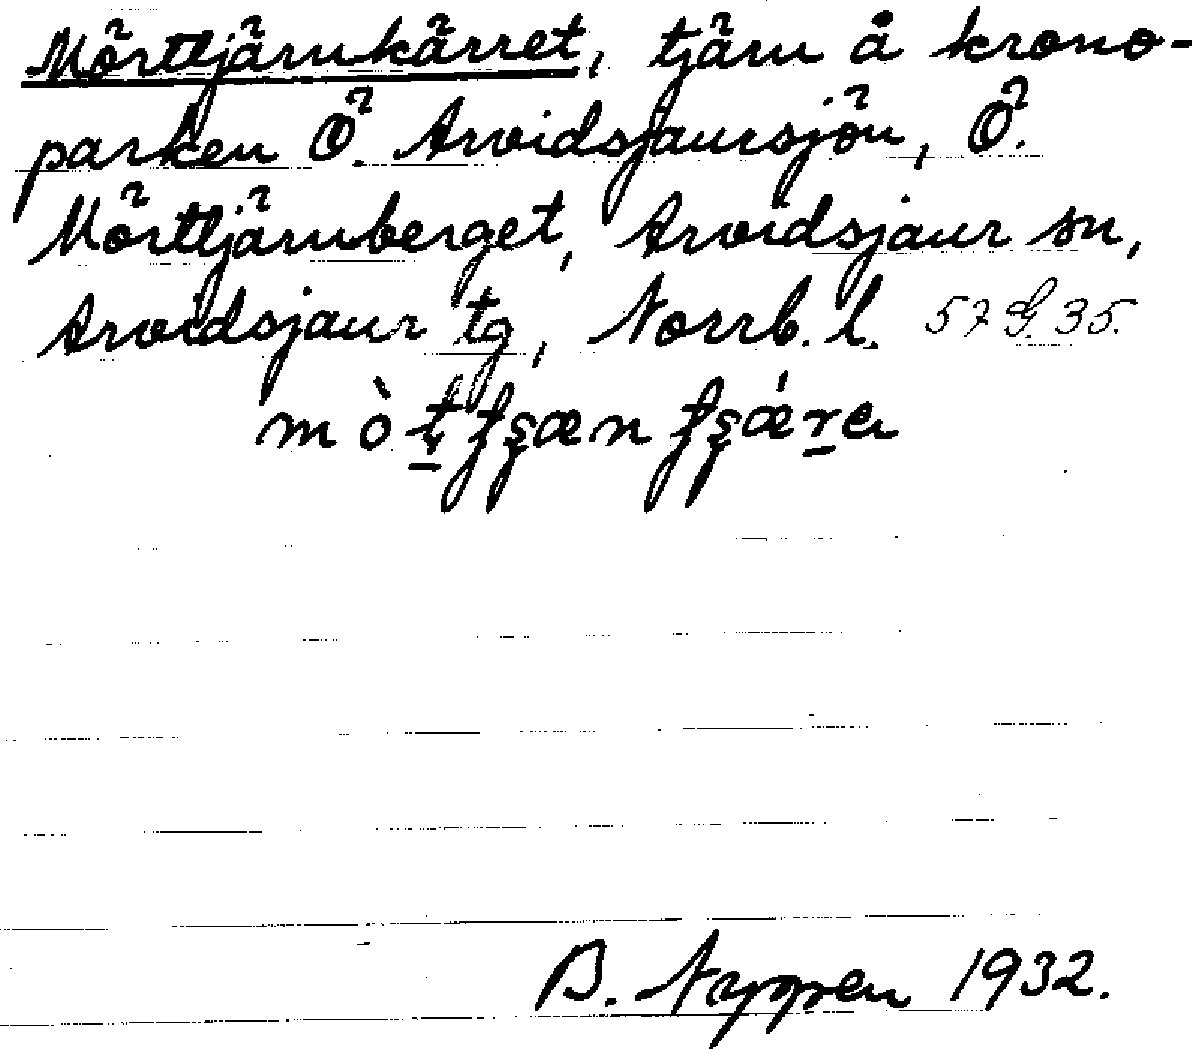 Mörttjärnkärret, tjärn å krono-
parken Ö. Arvidsjaursjön, Ö.
Mörttjärnberget, Arvidsjaur sn,
Arvidsjaur tg, Norrb. l. 57 G. 35.
B. Nygren 1932.